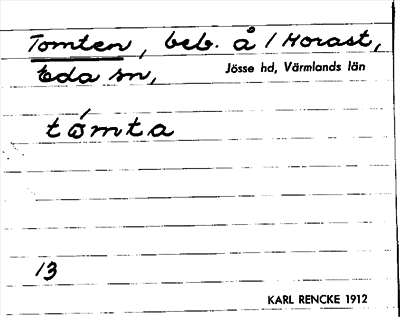 Tomten, beb. å /Horast,
Eda sn, Jösse hd, Värmlands län
tómta
13
KARL RENCKE 1912